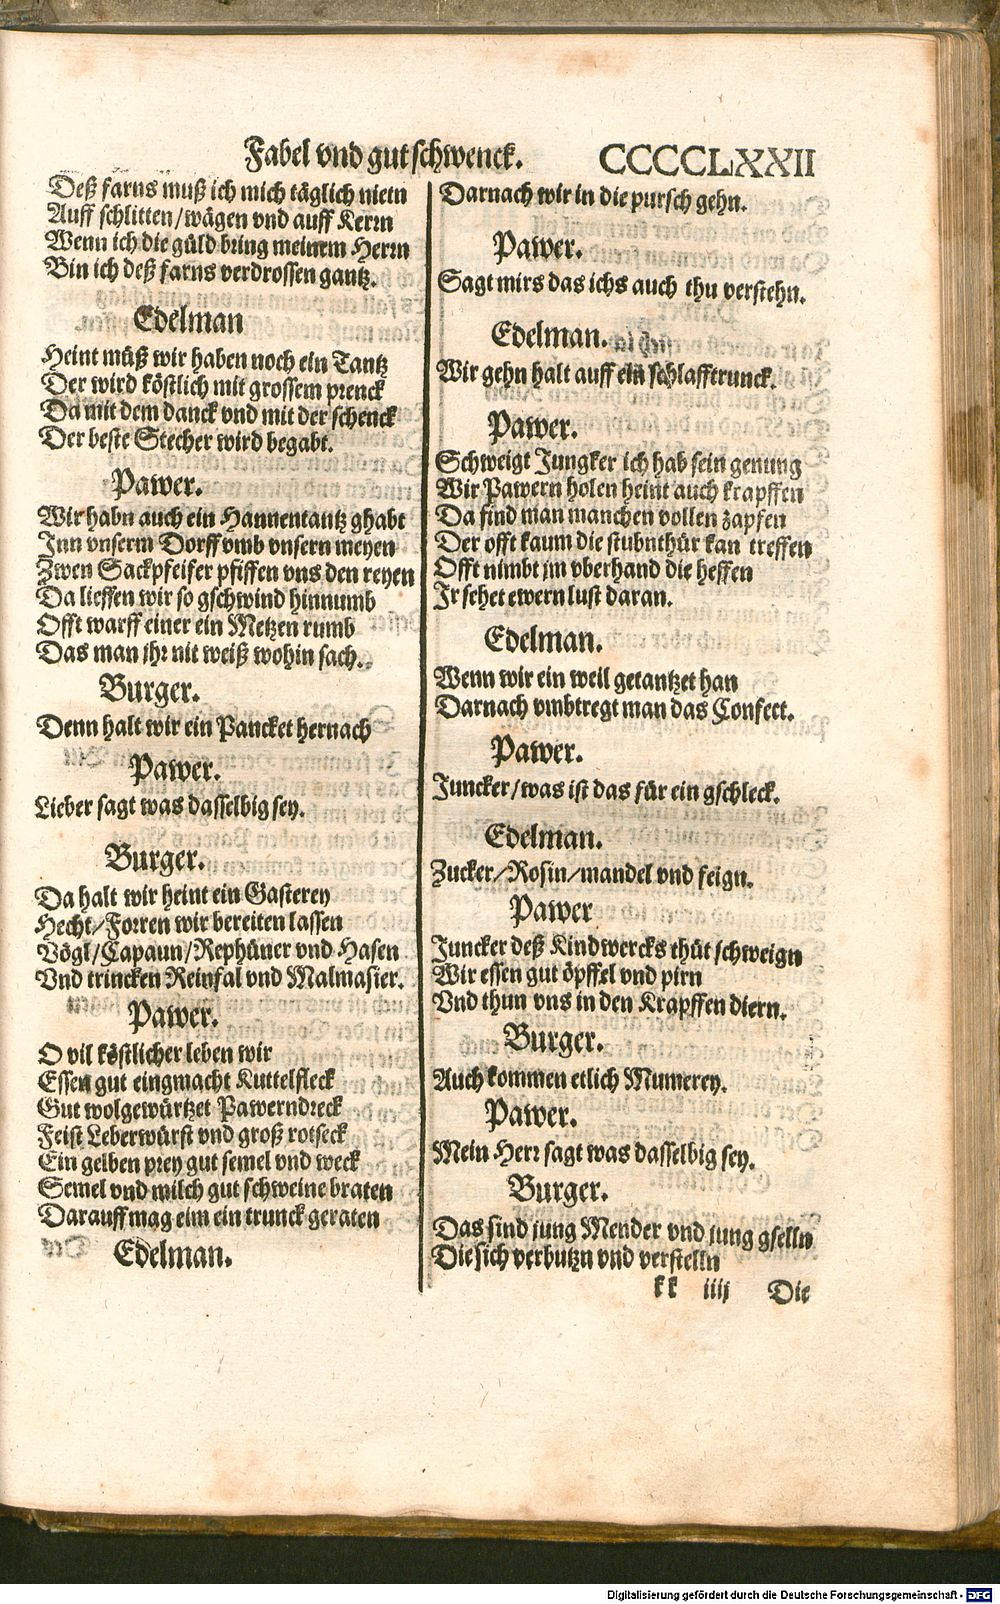 Fabel vnd gut schwenck. CCCCCLXXII
Deß farns muß ich mich täglich nietn
Auff schlitten/wägen vnd auff Kerrn
Wenn ich die güld bring meinem Herrn
Bin ich deß farns verdrossen gantz.
Edelman
Heint müß wir haben noch ein Tantz
Der wird köstlich mit grossem prenck
Da mit dem danck vnd mit der schenck
Der beste Stecher wird begabt.
Pawer.
Wir habn auch ein Hannentantz ghabt
Inn vnserm Dorff vmb vnsern meyen
Zwen Sackpfeifer pfiffen vns den reyen
Da lieffen wir so gschwind hinnumb
Offt warff einer ein Metzen rumb
Das man ihr nit weiß wohin sach.
Burger.
Denn halt wir ein Pancket hernach
Pawer.
Lieber sagt was dasselbig sey.
Burger.
Da halt wir heint ein Gasterey
Hecht/Forren wir bereiten lassen
Vögl/Capaun/Rephüner vnd Hasen
Vnd trincken Reinfal vnd Malmasier.
Pawer.
O vil köstlicher leben wir
Essen gut eingmacht Kuttelfleck
Gut wolgewürtzet Pawerndreck
Feist Leberwürst vnd groß rotseck
Ein gelben prey gut semel vnd weck
Semel vnd milch gut schweine braten
Darauff mag eim ein trunck geraten
Edelman.
Darnach wir in die pursch gehn.
Pawer.
Sagt mirs das ichs auch thu verstehn.
Edelman.
Wir gehn halt auff ein schlafftrunck.
Pawer.
Schweigt Jungker ich hab sein genung
Wir Pawern holen heint auch krapffen
Da find man manchen vollen zapfen
Der offt kaum die stubnthür kan treffen
Offt nimbt jm vberhand die heffen
Ir sehet ewern lust daran.
Edelman.
Wenn wir ein weil getantzet han
Darnach vmbtregt man das Confect.
Pawer.
Juncker/was ist das für ein gschleck.
Edelman.
Zucker/Rosin/mandel vnd feign.
Pawer
Juncker deß Kindwercks thüt schweign
Wir essen gut öpffel vnd pirn
Vnd thun vns in den Krapffen diern.
Burger.
Auch kommen etlich Mumerey.
Pawer.
Mein Herr sagt was dasselbig sey.
Burger.
Das sind jung Mender vnd jung gselln
Die sich verbutzn vnd verstelln
kk iiij Die
Digitalisierung gefördert durch die Deutsche Forschungsgemeinschaft - DFG